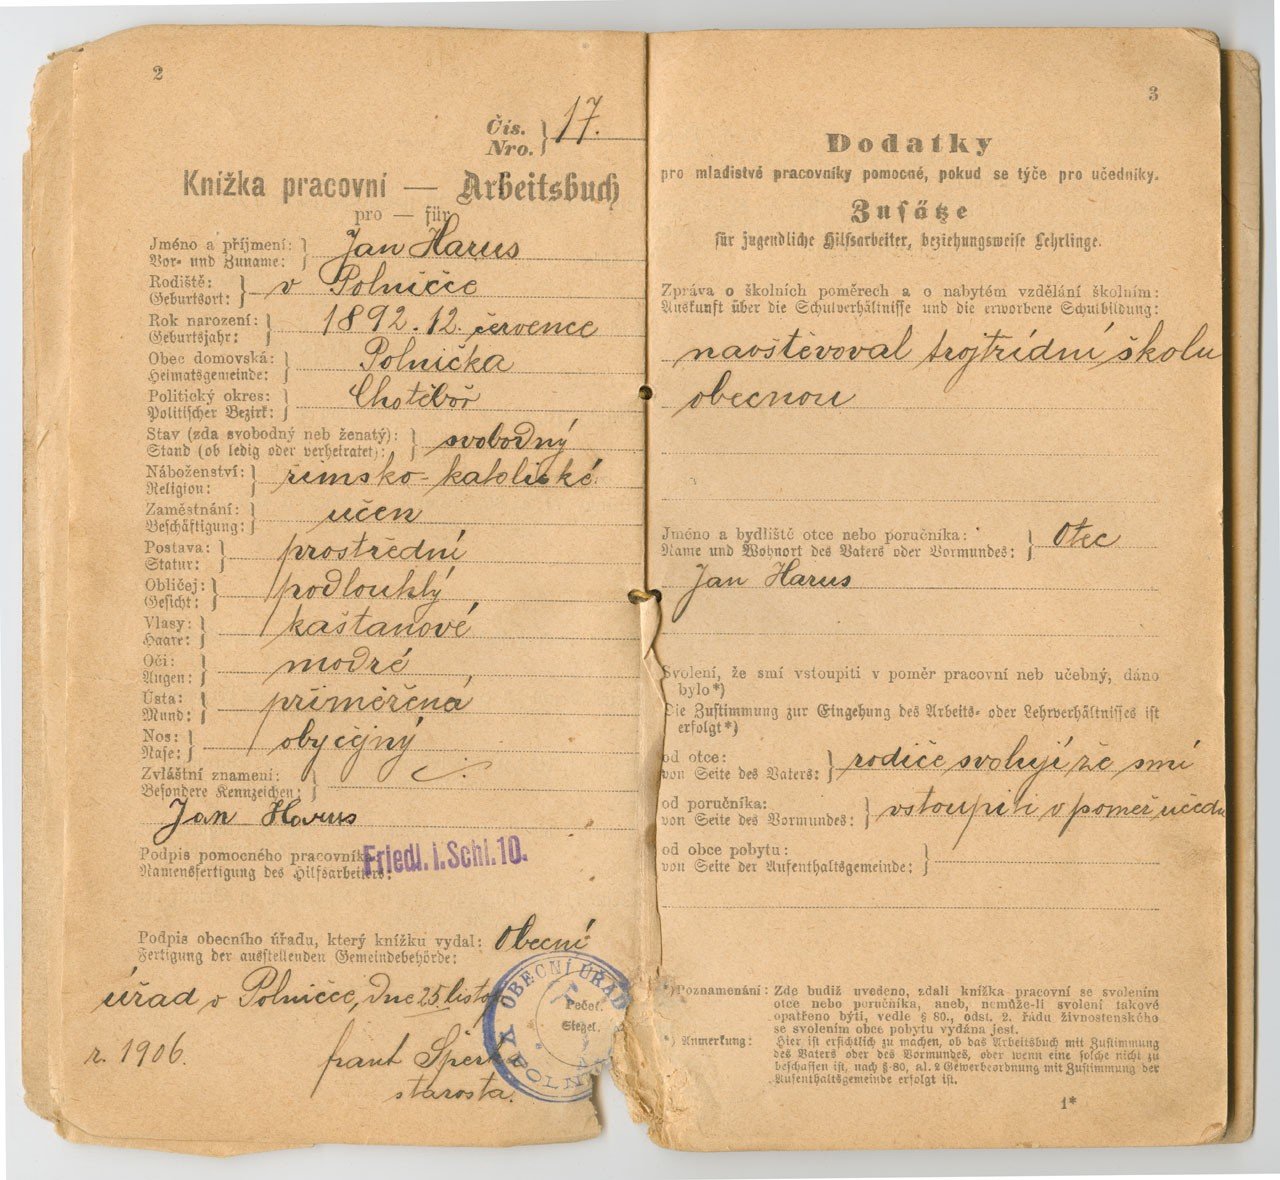 2
Čís.
Nro. } 17.
Knížka pracovní — Arbeitsbuch
pro — für
Jméno a příjmení:
Vor- und Zuname: } Jan Harus
Rodiště:
Geburtsort: } v Polničce
Rok narození:
Geburtsjahr: } 1892. 12. července
Obec domovská:
Heimatsgemeinde: } Polnička
Politický okres:
Politischer Bezirk: } Chotěboř
Stav (zda svobodný neb ženatý):
Stand (ob ledig oder verheiratet): } svobodný
Náboženství:
Religion: } římsko-katolické
Zaměstnání:
Beschäftigung: } učen
Postava:
Statur: } prostřední
Obličej:
Gesicht: } podlouhlý
Vlasy:
Haare: } kaštanové
Oči:
Augen: } modré
Ústa:
Mund: } přiměřená
Nos:
Nase: } obyčejný
Zvláštní znamení:
Besondere Kennzeichen: }
Jan Harus
Podpis pomocného pracovník
Namensfertigung des Hilfsarbeiters:
Friedl. i. Schl. 10.
Podpis obecního úřadu, který knížku vydal: Obecní
Fertigung der ausstellenden Gemeindebehörde:
úřad v Polničce, dne 25. listop
r. 1906.
frant
starosta.
OBECNÍ ÚŘAD
Pečeť.
Siegel.
3
Dodatky
pro mladistvé pracovníky pomocné, pokud se týče pro učedníky.
Zusätze
für jugendliche Hilfsarbeiter, beziehungsweise Lehrlinge.
Zpráva o školních poměrech a o nabytém vzdělání školním:
Auskunft über die Schulverhältnisse und die erworbene Schulbildung:
navštěvoval trojtřídní školu
obecnou
Jméno a bydliště otce nebo poručníka:
Name und Wohnort des Vaters oder Vormundes: } Otec
Jan Harus
Svolení, že smí vstoupiti v poměr pracovní neb učebný, dáno
bylo*)
Die Zustimmung zur Eingehung des Arbeits- oder Lehrverhältnisses ist
erfolgt*)
od otce:
von Seite des Vaters: } rodiče svolují že smí
od poručníka:
von Seite des Vormundes: } vstoupiti v poměr učedn
od obce pobytu:
von Seite der Aufenthaltsgemeinde: }
*) Poznamenání: Zde budiž uvedeno, zdali knížka pracovní se svolením
otce nebo poručníka, aneb, nemůže-li svolení takové
opatřeno býti, vedle § 80., odst. 2. řádu živnostenského
se svolením obce pobytu vydána jest.
*) Anmerkung: Hier ist ersichtlich zu machen, ob das Arbeitsbuch mit Zustimmung
des Vaters oder des Vormundes, oder wenn eine solche nicht zu
beschaffen ist, nach § 80, al. 2 Gewerbeordnung mit Zustimmung der
Aufenthaltsgemeinde erfolgt ist.
1*